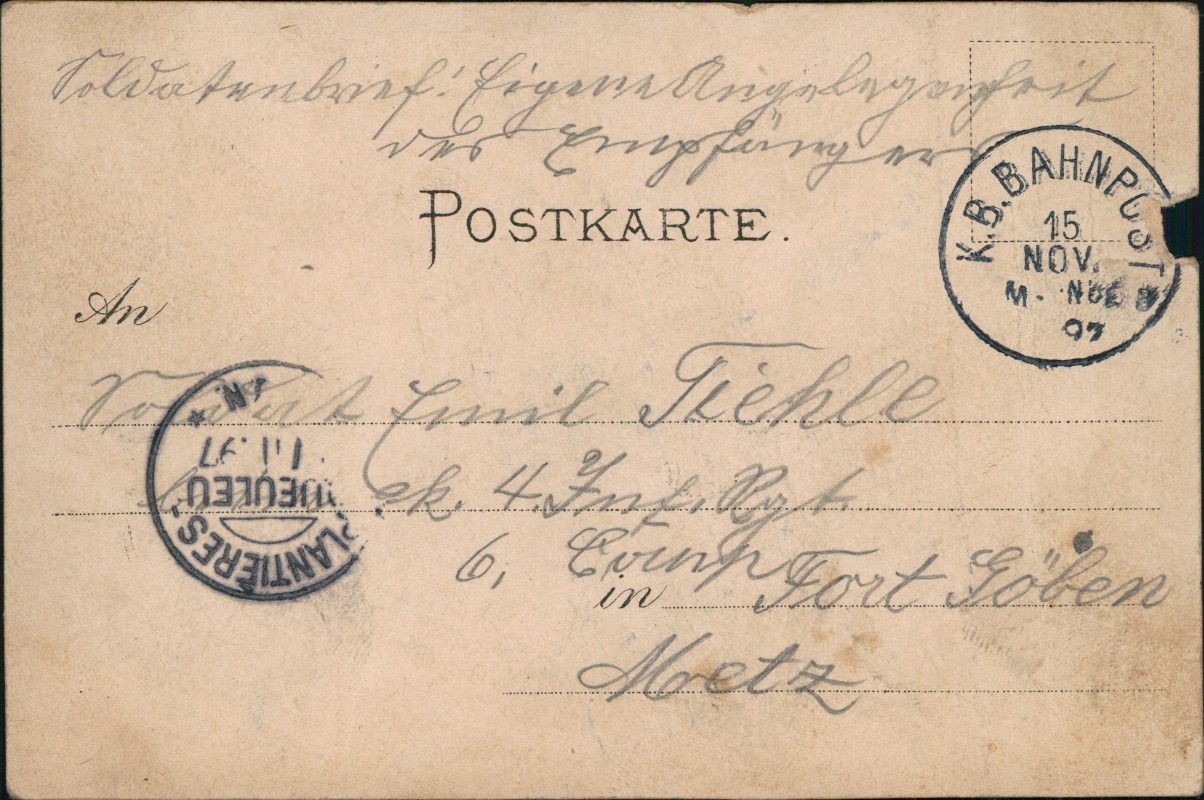 Soldatenbrief! Eigene Angelegenheit
des Empfängers
POSTKARTE.
K.B.BAHNPOST
15
NOV.
97
An
Soldat Emil Tiehle
k. 4. Inf. Rgt.
6. Comp
in Fort Göben
Metz
PLANTIÈRES-QUEULEU
97